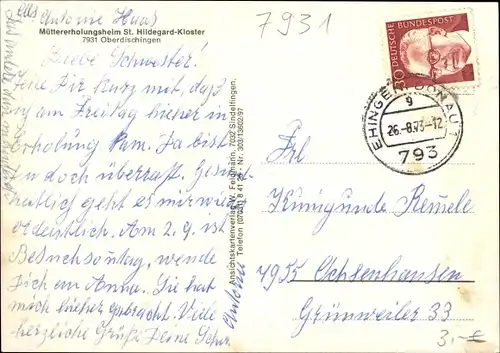 Abs Antonie Haas
7931
Müttererholungsheim St. Hildegard-Kloster
7931 Oberdischingen
Liebe Schwester!
Teile Dir kurz mit, daß
am Freitag hierher in
Erholung kam. Da bist
Du doch überrascht. Gesund-
heitlich geht es mir wieder
ordentlich. Am 2.9. ist
Besuchssonntag, wende
Dich an Anna. Sie hat
mich hierher gebracht. Viele
herzliche Grüße Deine Schw.
Antonie
Ansichtskartenverlag W. Feldmann, 7032 Sindelfingen,
Telefon (07031) 8 41 29 Nr. 303/13602/97
DEUTSCHE BUNDESPOST
30
EHINGEN (DONAU) 1
g
26.-8.73-12
793
Frl
Kunigunde Remele
7955 Ochsenhausen
Grünweiler 33
3,-€